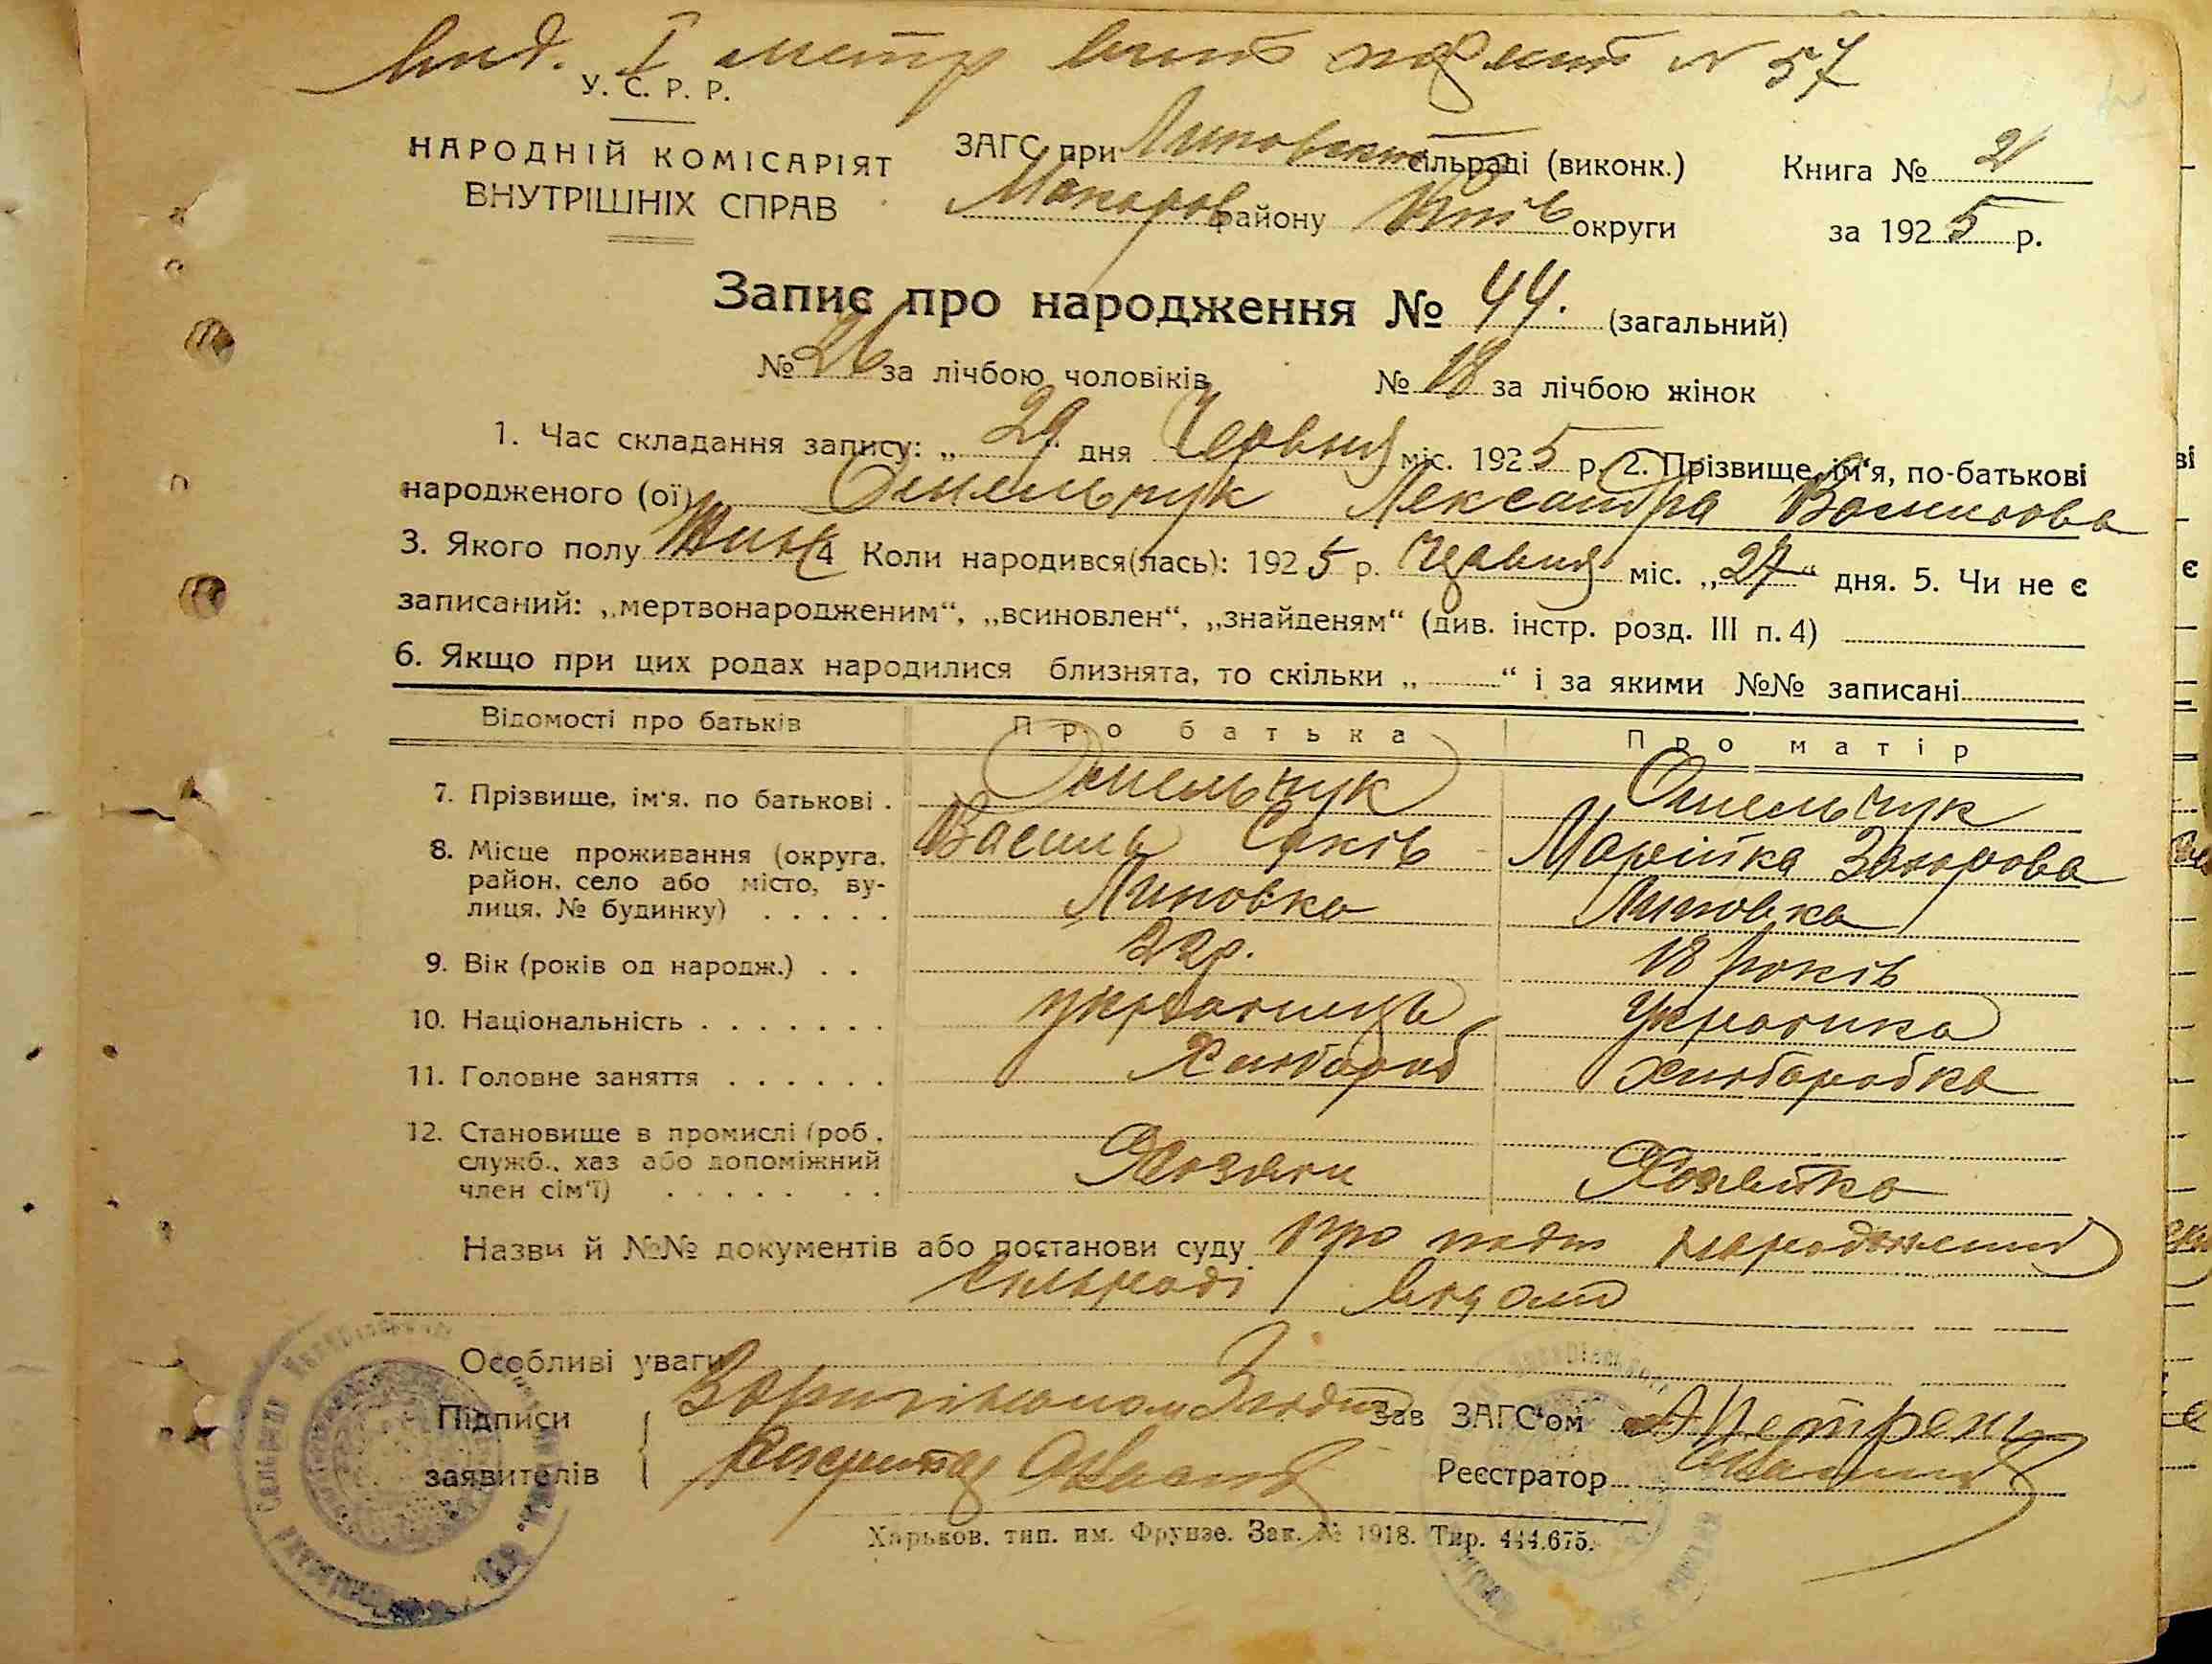 вид. I метр
N 57
У. С. Р. Р.
НАРОДНІЙ КОМІСАРІЯТ
ВНУТРІШНІХ СПРАВ
ЗАГС при Липовской сільраді (виконк.)
Макаров району Київ округи
Книга № 2
за 1925 р.
Запис про народження № 44. (загальний)
№ 26 за лічбою чоловіків № 18 за лічбою жінок
1. Час складання запису: „29“ дня Червня міс. 1925 р. 2. Прізвище, ім‘я, по-батькові
народженого (ої) Омельчук Лександра Василова
3. Якого полу Жин. 4 Коли народився(лась): 1925 р. Червня міс. „27“ дня. 5. Чи не є
записаний: „мертвонародженим“, „всиновлен“, „знайденям“ (див. інстр. розд. III п. 4)
6. Якщо при цих родах народилися близнята, то скільки „ “ і за якими №№ записані
Відомості про батьків Про батька Про матір
7. Прізвище, ім‘я, по батькові . Омельчук Омельчук
Василь Саків Марійка Захарова
8. Місце проживання (округа,
район, село або місто, ву-
лиця, № будинку) . . . . . Липовка Липовка
9. Вік (років од народж.) . . 22 р. 18 років
10. Національність . . . . . . . українець Українка
11. Головне заняття . . . . . . Хлібороб Хліборобка
12. Становище в промислі (роб.,
служб., хаз або допоміжний
член сім‘ї) . . . . . . . Хозяін Хозяйка
Назви й №№ документів або постанови суду про народження
сільраді
Особливі уваги
Підписи
заявителів
Зав ЗАГС‘ом А Петрен
Реєстратор
Харьков, тип. им. Фрунзе. Зак. № 1918. Тир. 444.675.